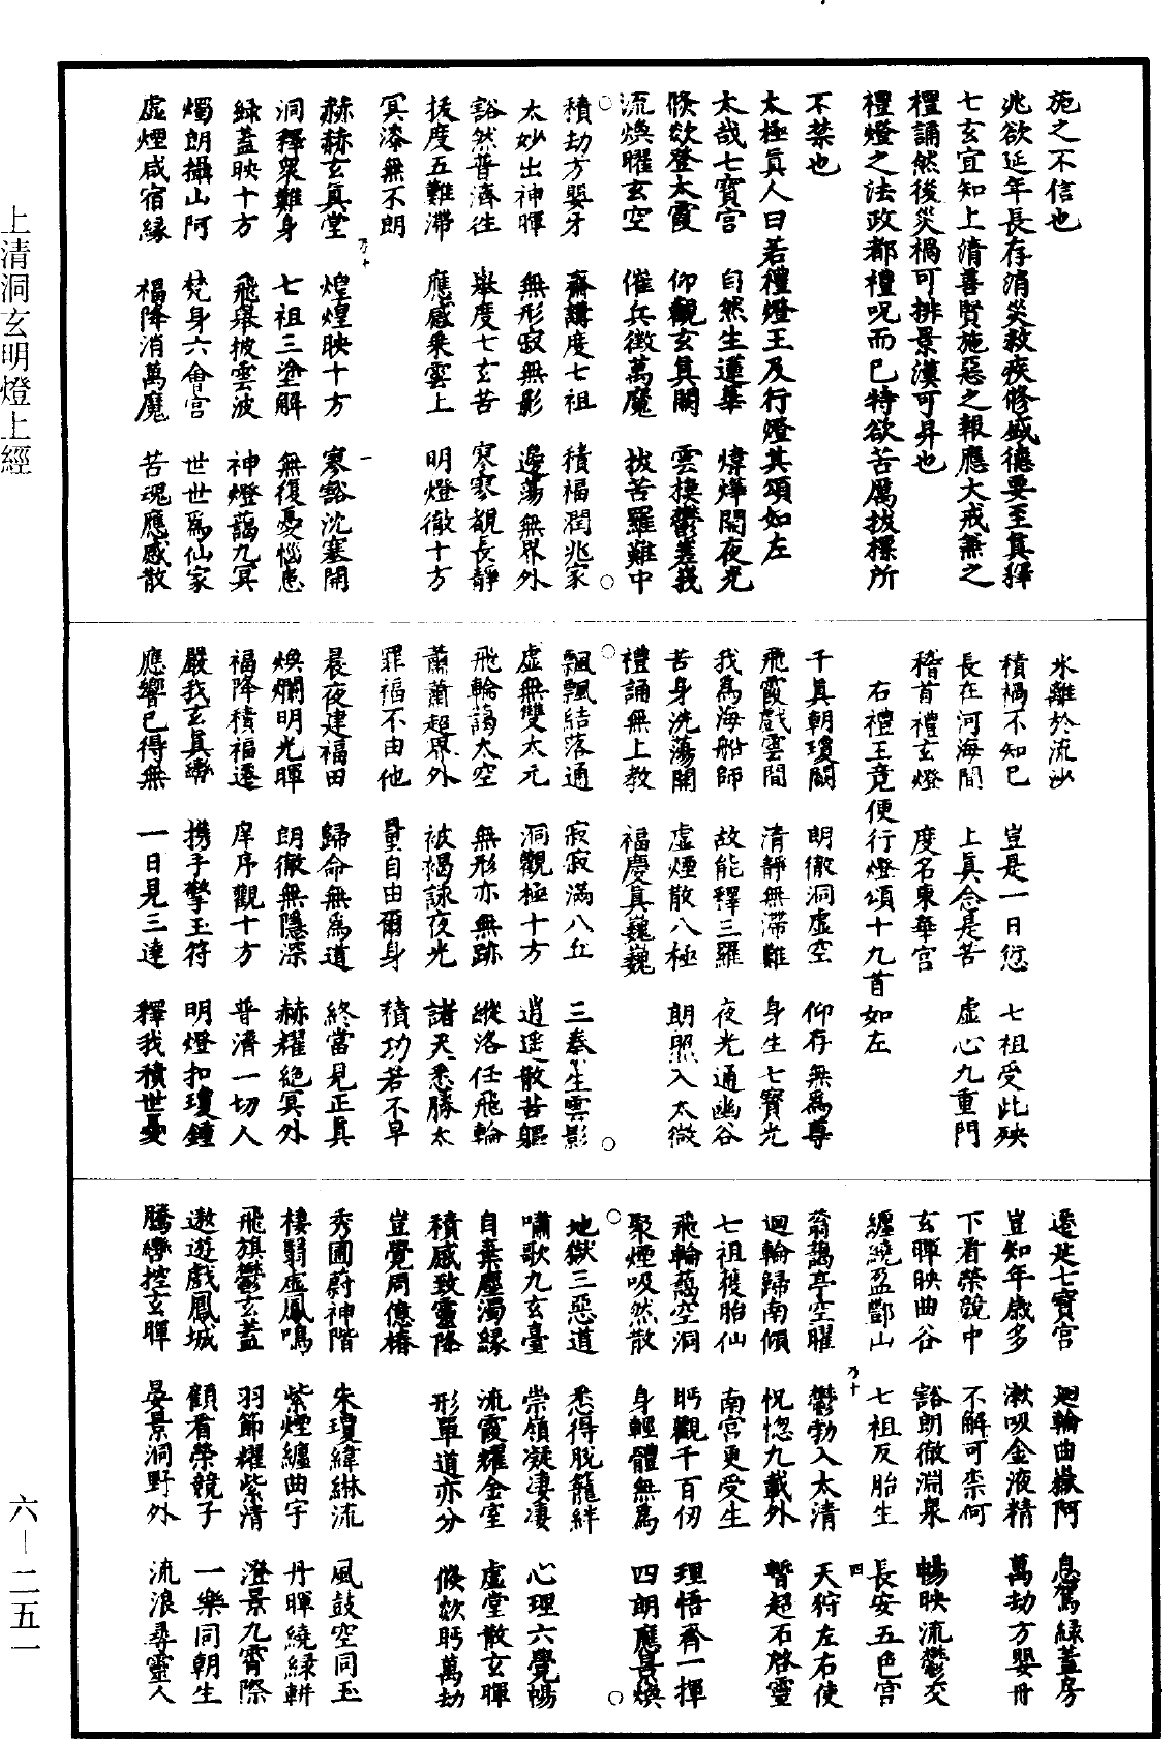 上清洞玄明燈上經
施之不信也
兆欲延年長存消災救疾修威德要至真釋
七玄宜知上清喜賢施惡之報應大戒無之
禮誦然後災禍可排景漢可昇也
禮燈之法政都禮呪而已特欲苦厲拔標所
不禁也
太極真人曰若禮燈王及行燈其頌如左
太哉七寶宮 自然生蓮華 煒燁開夜光
倏欻登太霞 仰觀玄真闕 雲棲鬱嵳我
流煥曜玄空 催兵徵萬魔 披苦羅難中
積劫方嬰牙 齋講度七祖 積福潤兆家
太妙出神暉 無形寂無影 邈蕩無界外
豁然普濟往 舉度七玄苦 寥寥覩長靜
拔度五難滯 應感乘雲上 明燈徹十方
冥漆無不朗
赫赫玄真堂 煌煌映十方 寥豁沈塞開
洞釋衆難身 七祖三塗解 無復憂惱患
綠蓋映十方 飛舉披雲波 神燈藹九冥
燭朗攝山阿 梵身六會宮 世世爲仙家
虛煙咸宿緣 福降消萬魔 苦魂應感散
氷離於流沙
積禍不知已 豈是一日愆 七祖受此殃
長在河海間 上真念是苦 虛心九重門
稽首禮玄燈 度名東華宮
右禮王竟便行燈頌十九首如左
千真朝瓊闕 朗徹洞虛空 仰存無爲尊
飛霞戲雲間 清靜無滯難 身生七寶光
我爲海船師 故能釋三羅 夜光通幽谷
苦身洗蕩開 虛煙散八極 朗照入太微
禮誦無上教 福慶真巍巍
飄飄結落通 寂寂滿八丘 三奏生雲影
虛無雙太元 洞觀極十方 逍遥散苦軀
飛輪藹太空 無形亦無跡 縱洛任飛輪
蕭蕭超界外 被褐詠夜光 諸天悉勝太
罪福不由他 量自由爾身 積功若不早
晨夜建福田 歸命無爲道 終當見正真
煥爛明光暉 朗徹無隱深 赫耀絕冥外
福降積福遷 庠序觀十方 普濟一切人
嚴我玄真轡 携手擎玉符 明燈扣瓊鐘
應響已得無 一日見三達 釋我積世憂
還此七寶宮 廻輪曲嶽阿 息駕綠蓋房
豈知年歲多 漱吸金液精 萬劫方嬰毌
下看榮競中 不解可柰何
玄暉映曲谷 豁朗徹淵泉 暢映流鬱交
纏繞盈酆山 七祖反胎生 長安五色宮
蓊藹亭空曜 鬱勃入太清 天狩左右使
迴輪歸南傾 怳惚九載外 暫超石啓靈
七祖獲胎仙 南宮更受生
飛輪藹空洞 眄觀千百仞 理悟齊一揮
聚煙吸然散 身輕體無爲 四朗應景煥
地獄三惡道 悉得脫籠絆
嘯歌九玄臺 崇嶺凝淒淒 心理六覺暢
自棄塵濁緣 流霞耀金室 虛堂散玄暉
積感致靈降 形單道亦分 倏欻眄萬劫
豈覺周億椿
秀圃蔚神階 朱瓊緯綝流 風鼓空同玉
棲翳虛鳳鳴 紫煙纏曲宇 丹暉繞綠軿
飛旗鬱玄蓋 羽節耀紫清 澄景九霄際
遨遊戲鳳城 顧看榮競子 一樂同朝生
騰轡控玄暉 晏景洞野外 流浪尋靈人
六—二五一